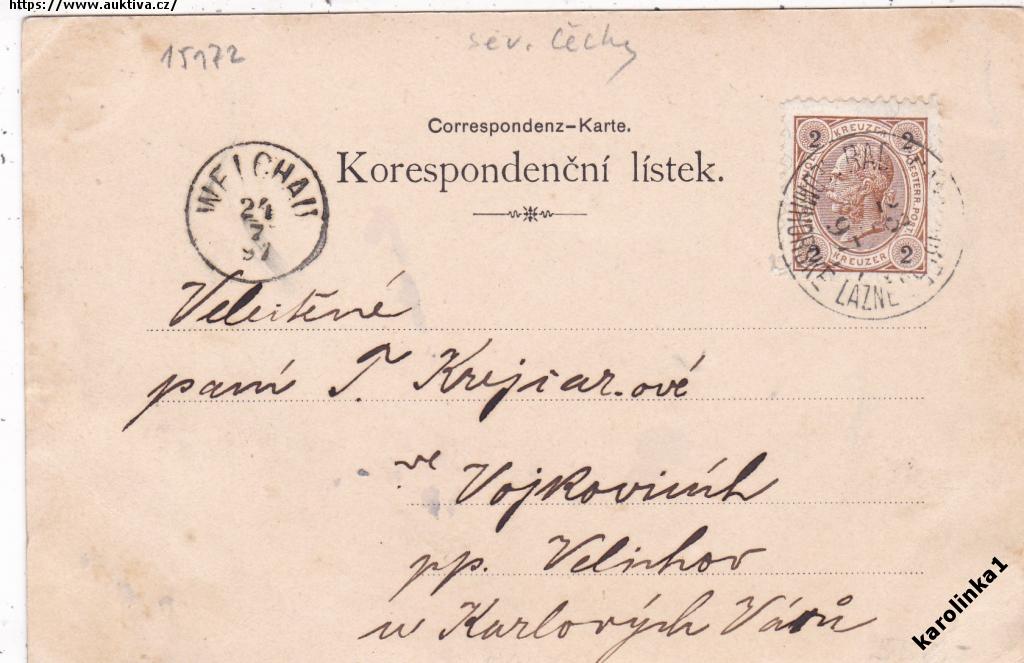 https://www.auktiva.cz/
15172
sev. Čechy
Correspondenz-Karte.
Korespondenční lístek.
WEICHAU
24
7
97
2 KREUZER 2
2 KREUZER 2
LÁZNĚ
Velectěné
paní T. Krejcar.ové
ve Vojkovicích
pp. Velichov
u Karlových Varů
karolinka1